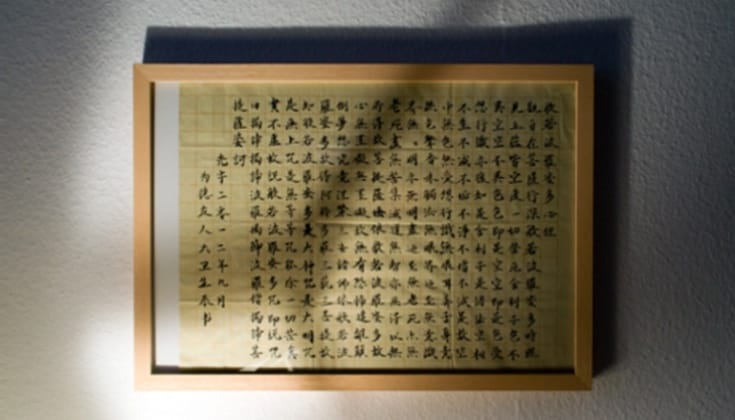 般若波羅蜜多心經
觀自在菩薩行深般若波羅蜜多時照
見五蘊皆空度一切苦厄舍利子色不
異空空不異色色即是空空即是色受
想行識亦復如是舍利子是諸法空相
不生不滅不垢不淨不增不減是故空
中無色無受想行識無眼耳鼻舌身意
無色聲香味觸法無眼界乃至無意識
界無無明亦無無明盡乃至無老死亦無
老死盡無苦集滅道無智亦無得以無
所得故菩提薩埵依般若波羅蜜多故
心無罣礙無罣礙故無有恐怖遠離顛
倒夢想究竟涅槃三世諸佛依般若波
羅蜜多故得阿耨多羅三藐三菩提故
知般若波羅蜜多是大神咒是大明咒
是無上咒是無等等咒能除一切苦真
實不虛故說般若波羅蜜多咒即說咒
曰揭諦揭諦波羅揭諦波羅僧揭諦菩
提薩婆訶
二零一二年九月
为德友人大卫奉书